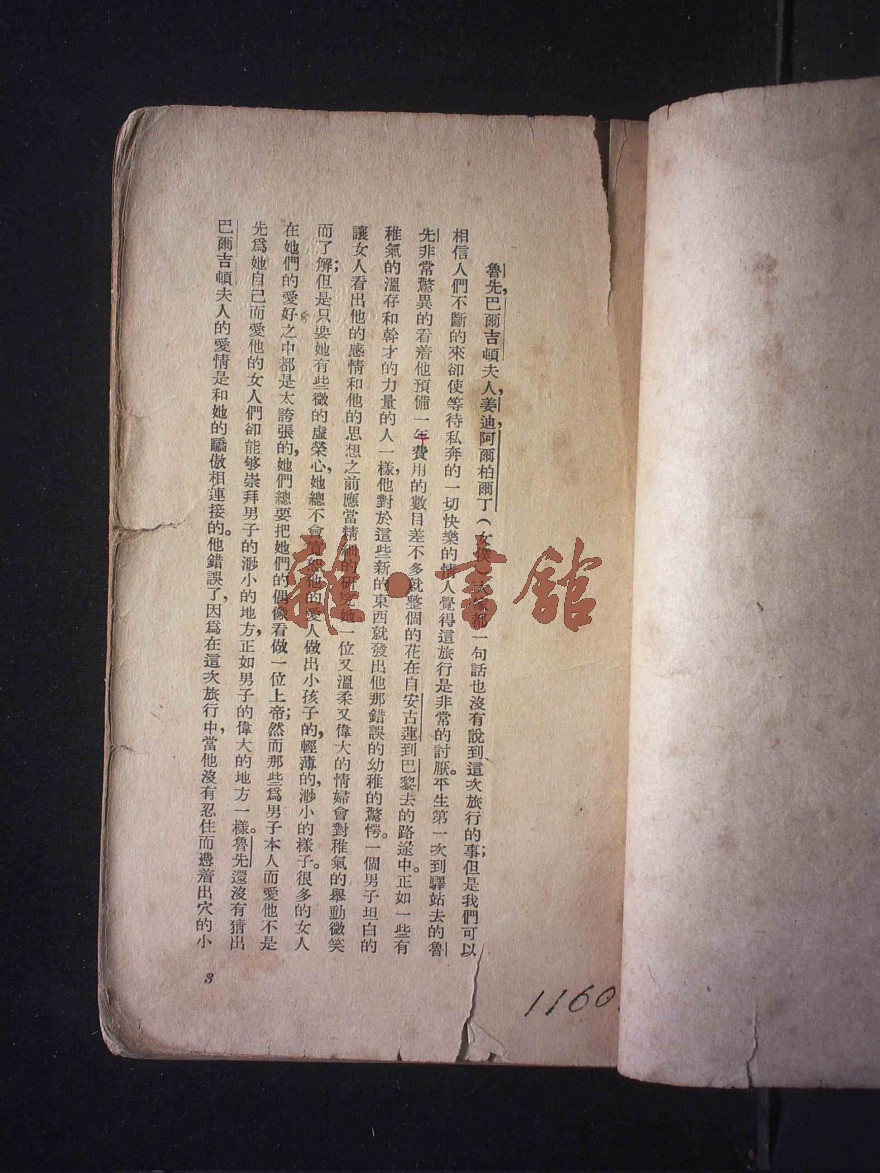 魯先，巴爾吉頓夫人，姜迪，阿爾柏爾丁（女僕）一句話也沒有說到這次旅行的事；但是我們可以
相信人們不斷的來卻使等待私奔的一切快樂的情人覺得這旅行是非常的討厭。平生第一次到驛站去的魯
先非常驚異的看着他預備一年費用的數目差不多就整個的花在自安古蓮到巴黎去的路途中。正如一些有
稚氣的溫存和幹才的力量的人一樣，他對於這些新的東西就發出他那錯誤的幼稚的驚愕。一個男子坦白的
讓女人看出他的感情和他的思想之前應當精細的研究她。一位又溫柔又偉大的情婦會對稚氣的舉動微笑
而了解；但是只要她有些微的虛榮心，她總不會他的愛人做出小孩子的，輕薄的，渺小的樣子。很多的女人
在她們的愛好之中都是太誇張的，她們總要把她們的偶像看做一位上帝；然而那些爲男子本人而愛他不是
先爲她自己而愛他的女人們卻能够崇拜男子的渺小的地方，正如男子的偉大的地方一樣。魯先還沒有猜出
巴爾吉頓夫人的愛情是和她的驕傲相連接的。他錯誤了，因爲在這次旅行中，當他沒有忍住而遇着出穴的小
3
1160
雜·書館